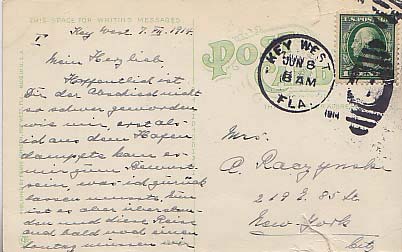 THIS SPACE FOR WRITING MESSAGES
I
Key West 7. VI. 1914.
Mein Herzlieb.
Hoffentlich ist
Dir der Abschied nicht
so schwer geworden
wie mir, erst als
ich aus dem Hafen
dampfte kam es
mir zum Bewusst
sein, was ich zurück
lassen musste,
und diese Reise
und bald noch einen
POST CARD
KEY WEST
JUN 8
6 AM
FLA.
1914
Mrs.
A. Raczynska
219 E. 85 St
New York
City
MADE IN U.S.A.